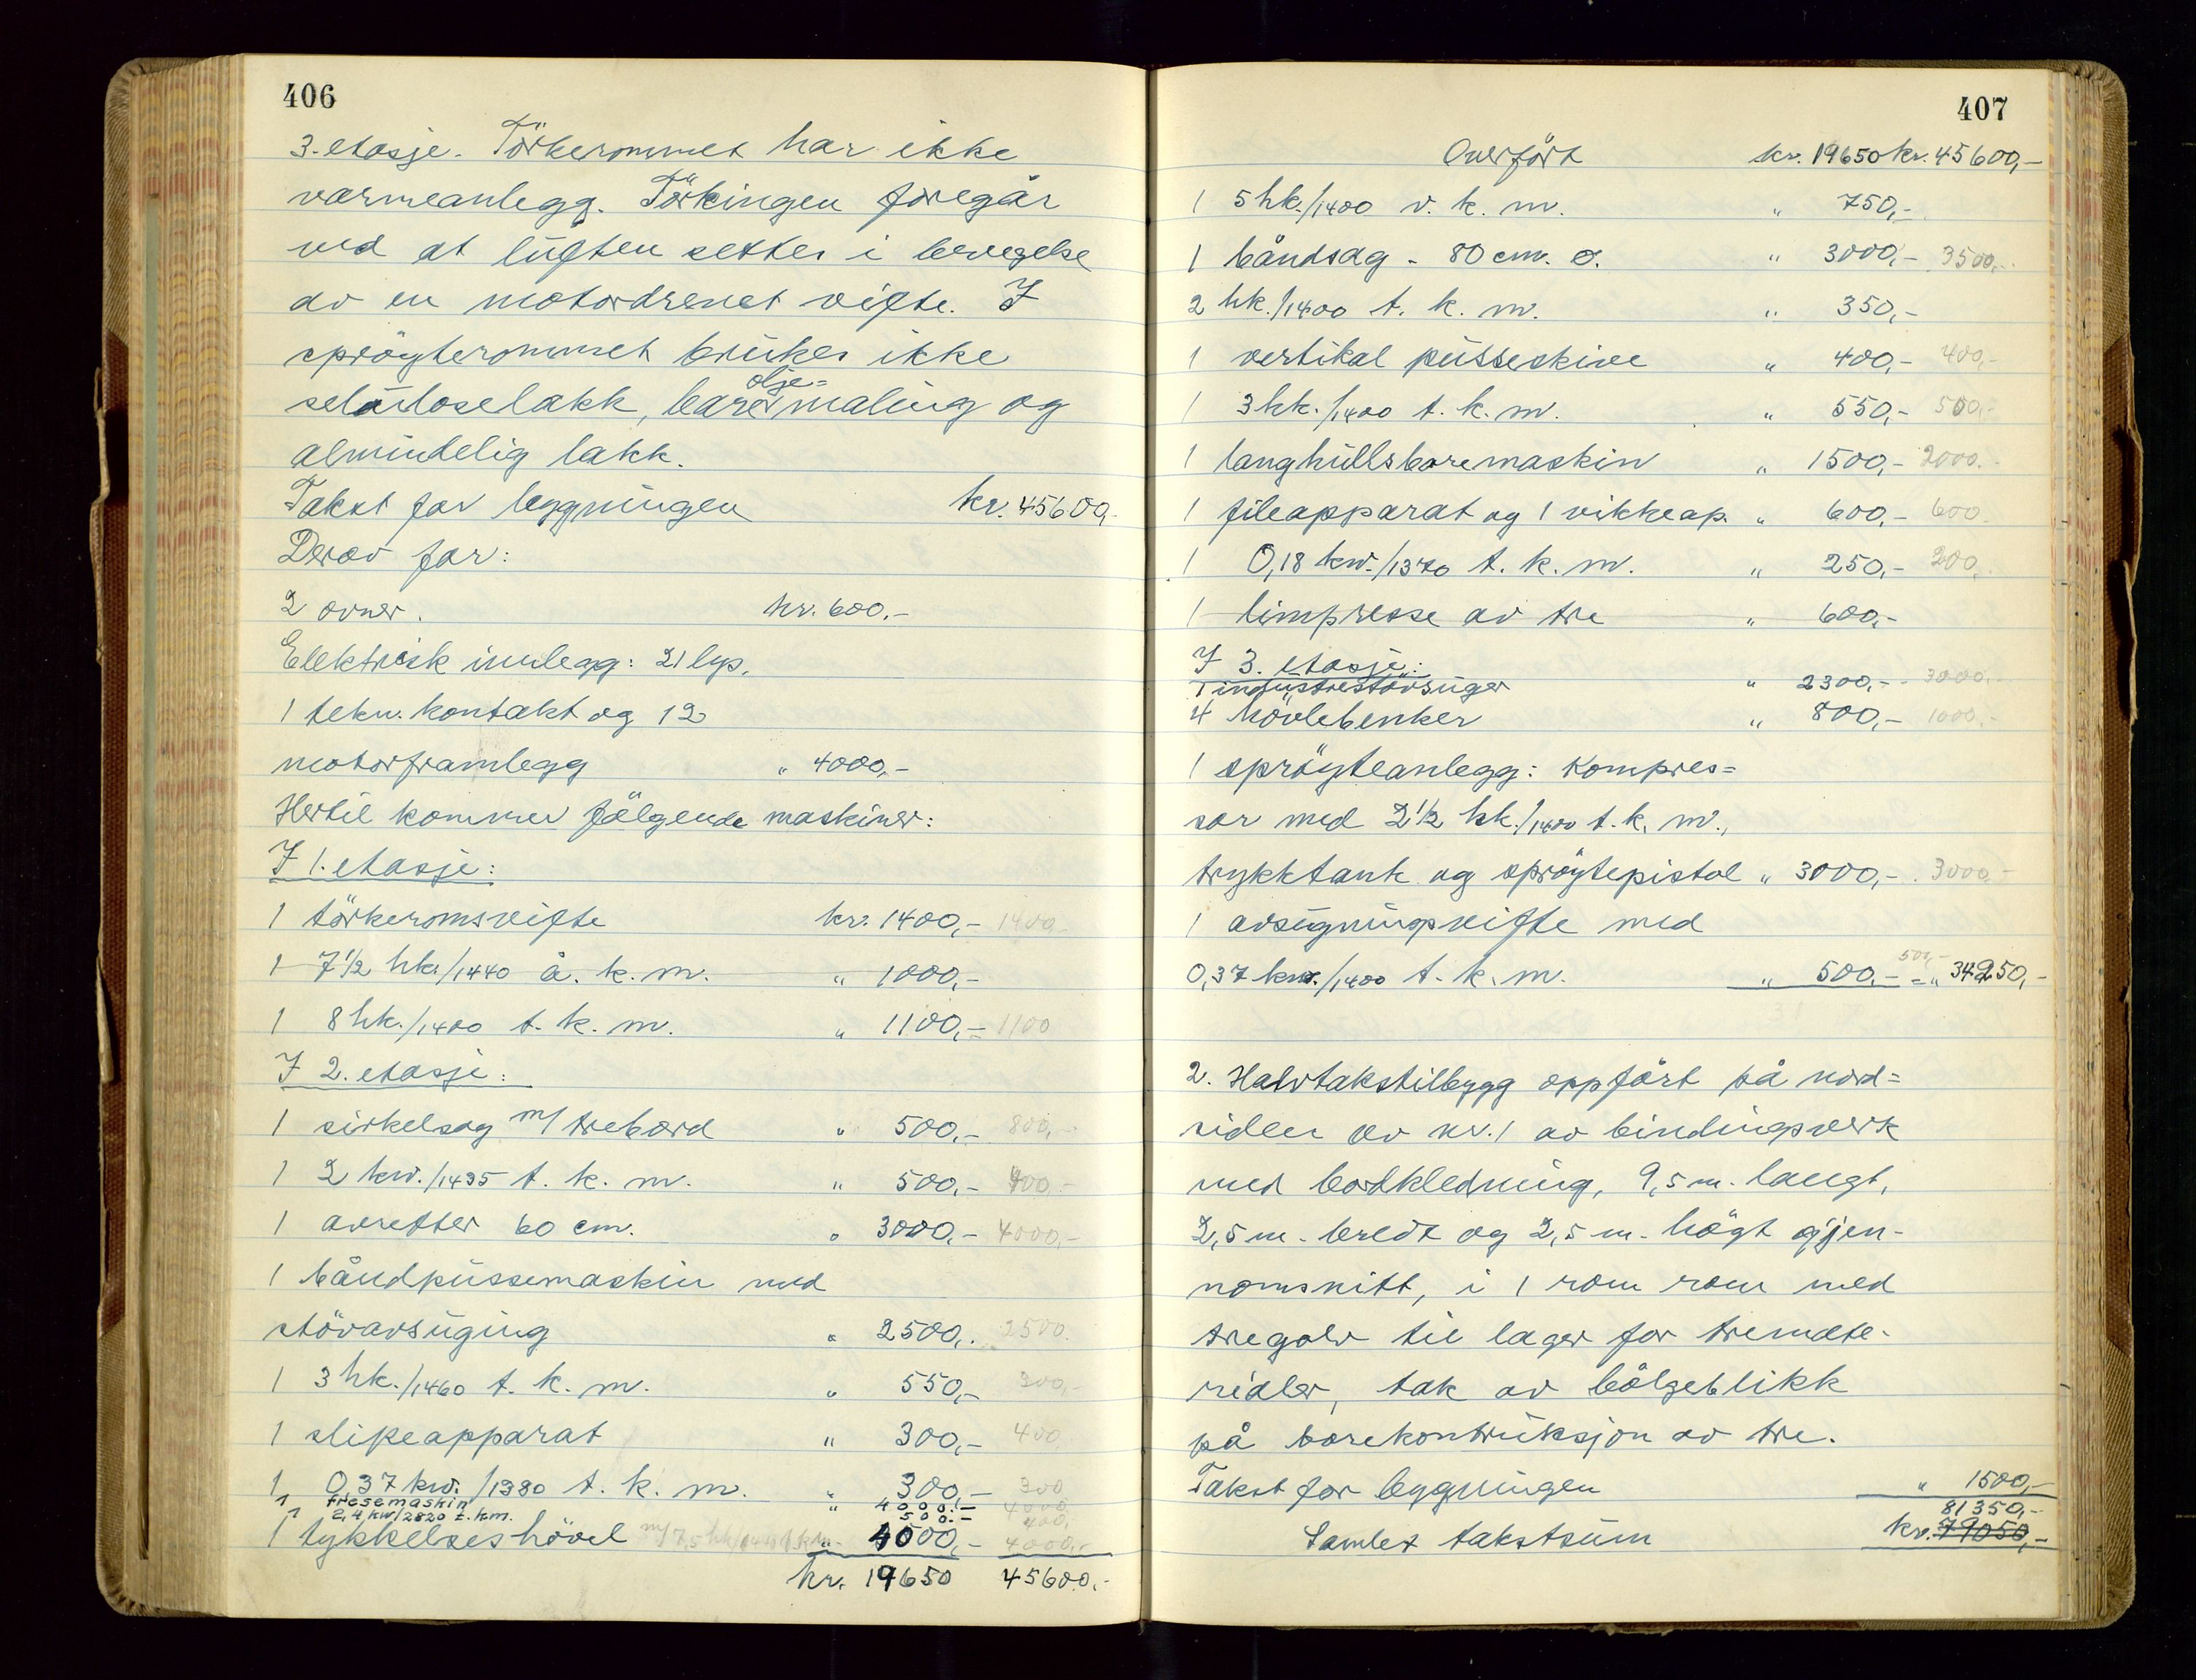 406
3. etasje. Törkerommet har ikke
varmeanlegg. Törkingen foregår
ved at luften settes i bevegelse
av en motordrevet vifte. I
spröyterommet brukes ikke
olje=
seluloselakk, bare maling og
almindelig lakk.
Takst for bygningen kr. 45600,-
Derav for:
2 ovner. kr. 600.-
Elektrisk innlegg: 21 lyp.
1 tekn. kontakt og 12
motorframlegg " 4000,-
Hertil kommer fölgende maskiner:
I 1. etasje:
1 törkeromsvifte kr. 1400,- 1400,-
1 7½ hk./1440 å. k. m. " 1000,-
1 8 hk./1400 t. k. m. " 1100,- 1100
I 2. etasje:
1 sirkelsag m/ trebord " 500,- 800,-
1 2 kw./1435 t. k. m. " 500,- 400,-
1 avretter 60 cm. " 3000,- 4000,-
1 båndpussemaskin med
stövavsuging " 2500,. 2500.
1 3 hk./1460 t. k. m. " 550,- 300,-
1 slipeapparat " 300,- 400
1 0,37 kw./1380 t. k. m. " 300,- 300
1 fresemaskin " 4000.- 4000,
1 2,4 kw/2820 t.k.m. 500.- 400,
1 tykkelseshövel m/7,5 hk/1440 t.k.m. " 4000,- 4000,-
kr. 19650 45600,-
407
Overfört kr. 19650 kr. 45600,-
1 5 hk./1400 v. k. m. " 750,-
1 båndsag - 80 cm. ø. " 3000,- 3500,-
2 hk./1400 t. k. m. " 350,-
1 vertikal pusseskive " 400,- 400,-
1 3 hk./1400 t. k. m. " 550,- 500,-
1 langhullsboremaskin " 1500,- 2000.
1 fileapparat og 1 vikkeap. " 600,- 600.
1 0,18 kw./1370 t. k. m. " 250,- 200,
1 limpresse av tre " 600,-
I 3. etasje:
1 industristövsuger " 2300,- 3000,-
4 hövlebenker " 800,- 1000,-
1 spröyteanlegg: Kompres=
sor med 2½ hk./1400 t. k. m.,
trykktank og spröytepistol " 3000,- 3000,-
1 avsugningsvifte med
0,37 kw./1400 t. k. m. " 500,- 500,- = " 34250,-
2. Halvtakstilbygg oppfört på nord=
siden av nr. 1 av bindingsverk
med bordkledning, 9,5 m. langt,
2,5 m. bredt og 2,5 m. högt gjen-
nomsnitt, i 1 rom rom med
tregolv til lager for tremate-
rialer, tak av bölgeblikk
på berekontruksjon av tre.
Takst for bygningen " 1500,-
81350,-
Samlet takstsum kr. 79050,-